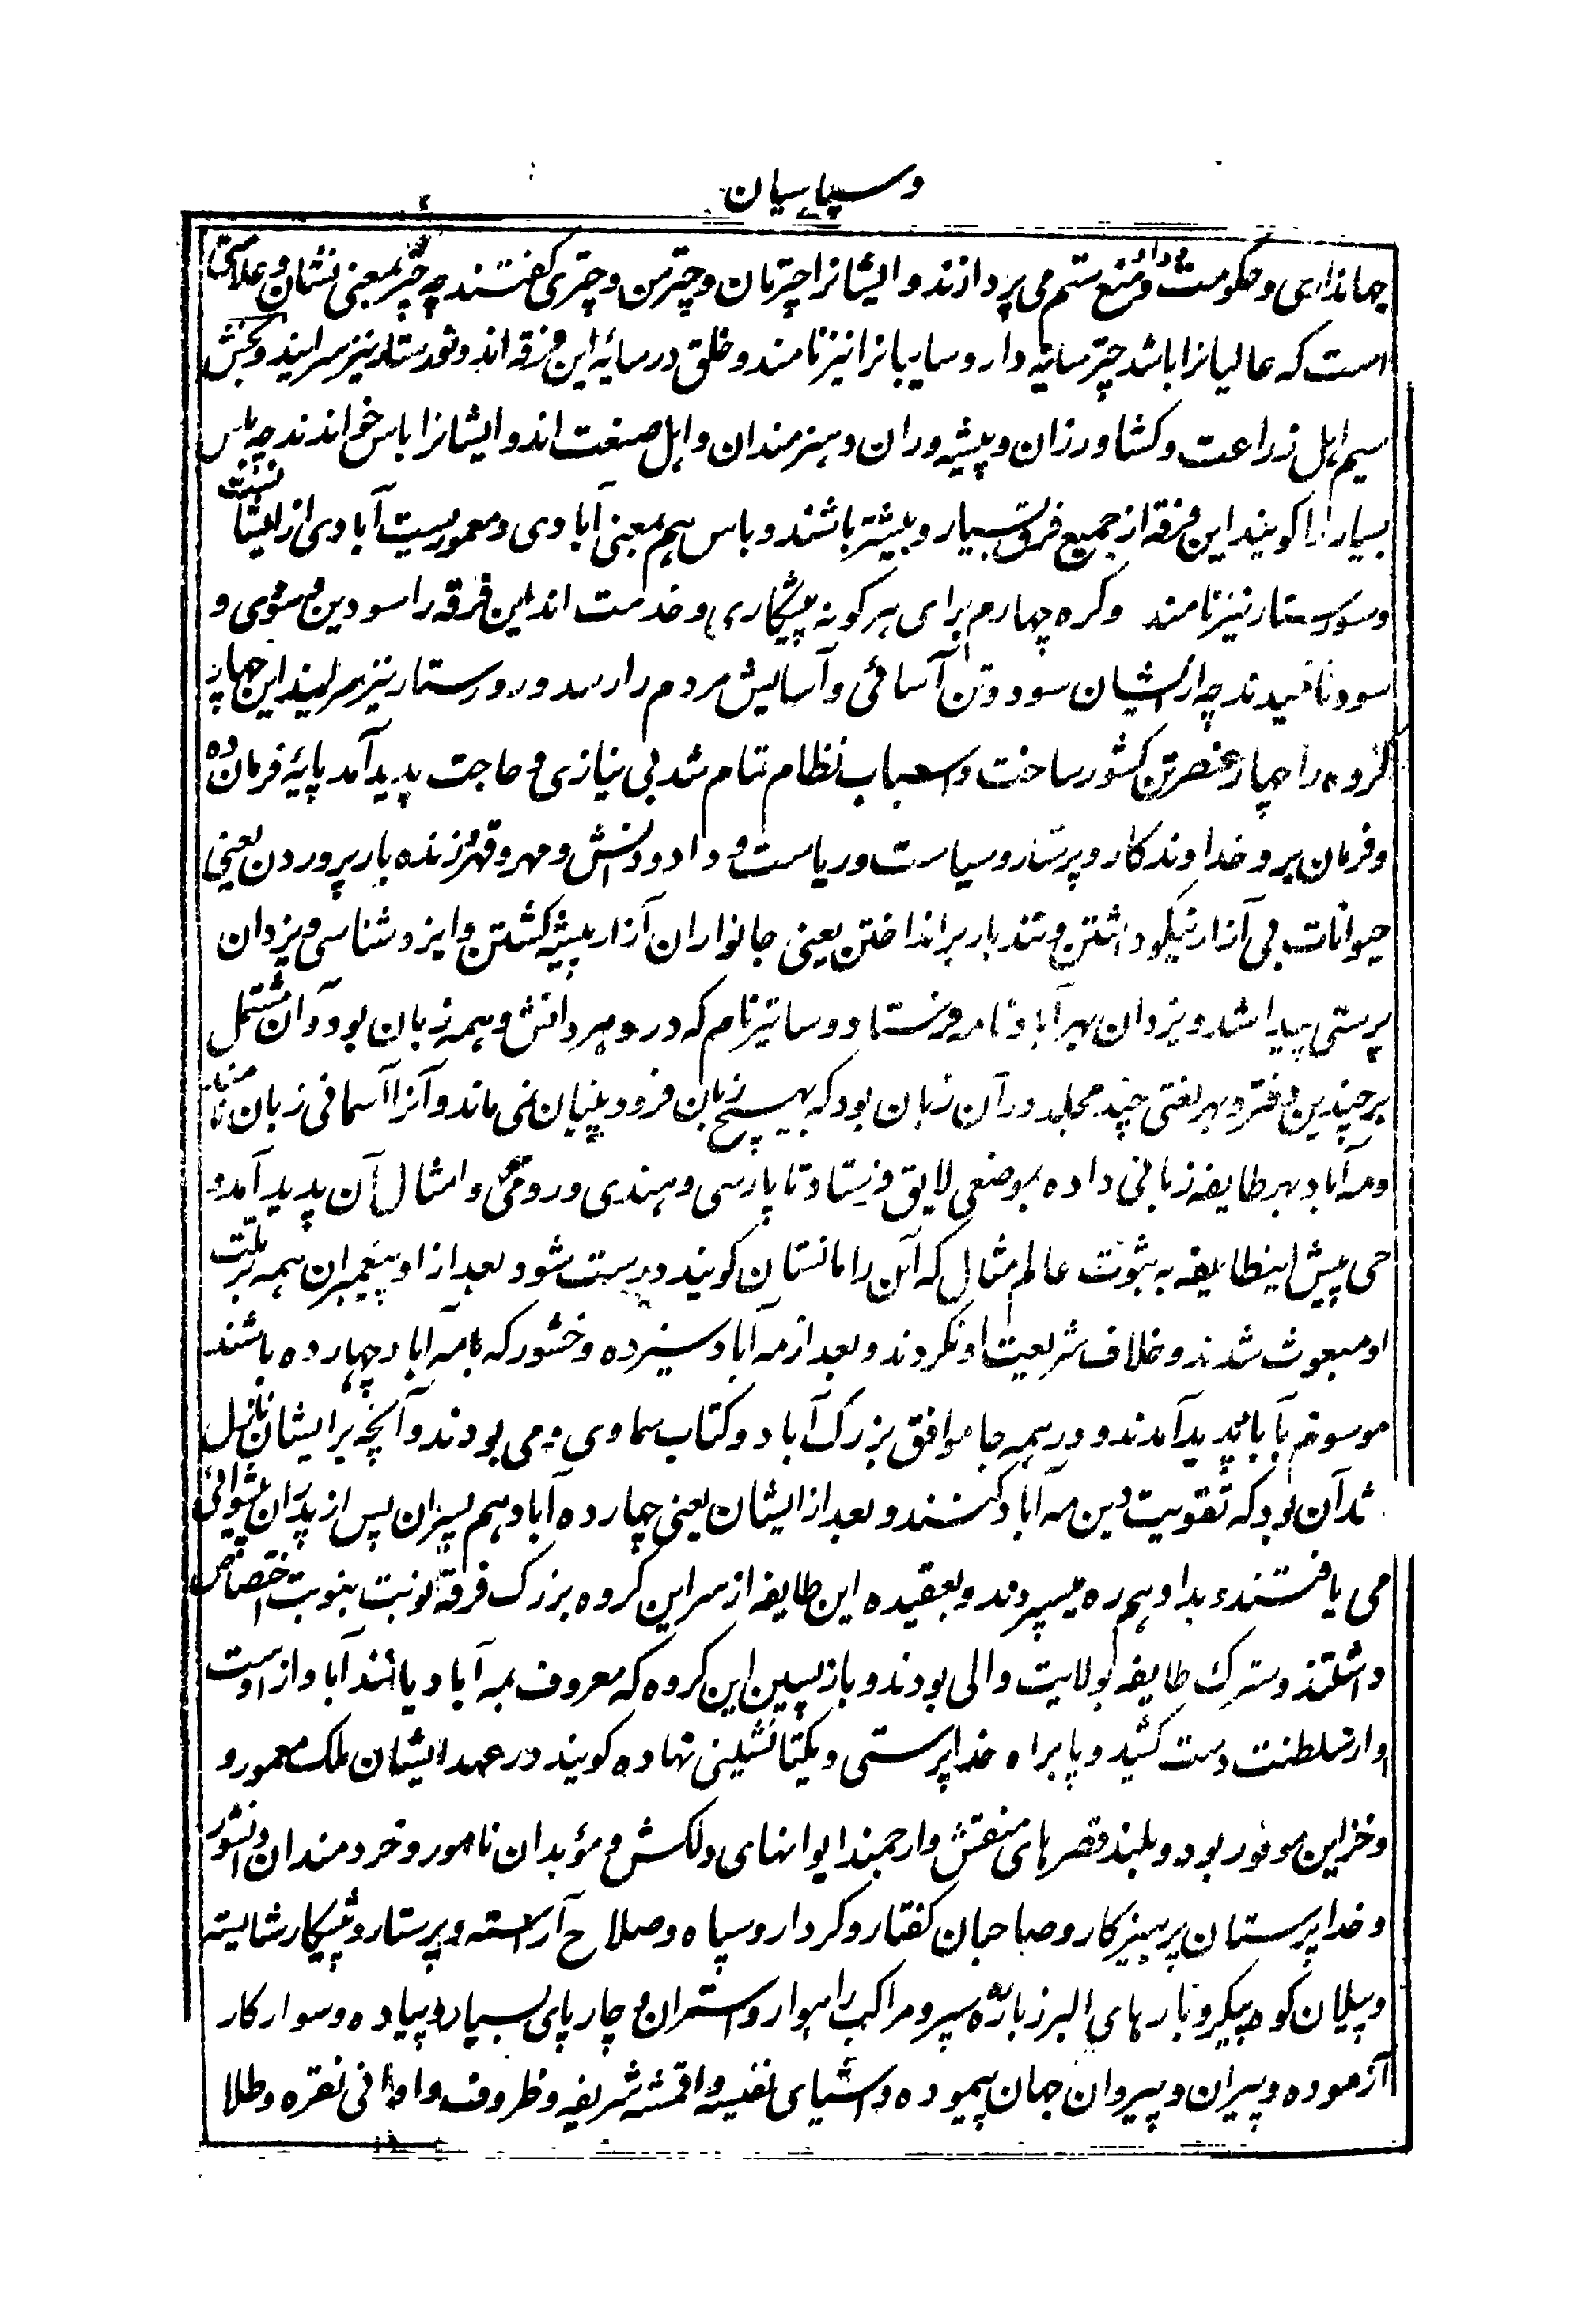 و سپاسیان
جهانداری و حکومت و داد و منع ستم می پردازند و ایشانرا چترمان و چترمن و چتری گفتند چه چتر بمعنی نشان و علامتی
است که عالیانرا باشد چتر سایه دار و سایبانرا نیز نامند و خلق در سایهٔ این فرقه اند و نورستار نیز سرایند و بخش
سیم اهل زراعت و کشاورزان و پیشه وران و هنرمندان و اهل صنعت اند و ایشانرا باس خوانند چه باس
بسیار را کویند این فرقه از جمیع فرق بسیار و بیشتر باشند و باس هم بمعنی آبادی و معموریست آبادی از ایشانست
و سورستار نیز نامند و کره چهارم برای هر کونه پیشکاری و خدمت اند این فرقه را سودین و سودی و
سود نامیدند چه از ایشان سود و تن آسانی و آسایش مردم را رسد و روزستار نیز سرایند این چهار
کروه را چهار عنصر تن کشور ساخت و اسباب نظام تمام شد بی نیازی و حاجت پدید آمد پایهٔ فرمان ده
و فرمان بر و خداوندکار و پرستار و سیاست و ریاست و داد و دانش و مهر و قهر و زنده بار پروردن یعنی
حیوانات بی آزار نیکو داشتن و تند بار برانداختن یعنی جانواران آزار پیشه کشتن و ایزد شناسی و یزدان
پرستی پیدا شد و یزدان بمه آباد نامه فرستاد دساتیر نام که در و هر دانش و همه زبان بود و آن مشتمل
بر چندین دفتر و بهر لغتی چند مجلد در آن زبان بود که بهیچ زبان فرودینیان نمی ماند و آنرا آسمانی زبان نامند
و مه آباد بهر طایفه زبانی داده بموضعی لایق فرستاد تا پارسی و هندی و رومی و امثال آن پدید آمد و
حی پیش اینطایفه به ثبوت عالم مثال که آن را مانستان کویند درست شود بعد از او پیغمبران همه بر ملت
او مبعوث شدند و خلاف شریعت او نکردند و بعد از مه آباد سیزده وخشور که با مه آباد چهارده باشند
موسوم بآباد پدید آمدند و در همه جا موافق بزرک آباد و کتاب سماوی وی می بودند و آنچه بر ایشان نازل
شد آن بود که تقویت دین مه آباد کنند و بعد از ایشان یعنی چهارده آباد هم پسران پس از پدران پیشوائی
می یافتند بداد هم ره میسپردند و بعقیده این طایفه از سر این کروه بزرک فرقهٔ نوبت بنوبت اختصاص
داشتند و سترک طایفه بولایت والی بودند و بازپسین این کروه که معروف بمه آبادیانند آباد ازاد است
او از سلطنت دست کشید و پا براه خداپرستی و یکتا نشینی نهاده کویند در عهد ایشان ملک معمور و
و خزاین موفور بود و بلند قصرهای منقش و ارجمند ایوانهای دلکش و مؤبدان نامور و خردمندان دانشور
و خداپرستان پرهیزکار و صاحبان کفتار و کردار و سپاه و صلاح آراسته و پرستار و پیشکار شایسته
و پیلان کوه پیکر و بارهای البرز باره سپر و مراکب راهوار و استران و چارپای بسیار و پیاده و سوار کار
آزموده و پیران و پیروان جهان پیموده و اشیای نفیسه و اقمشه شریفه و ظروف و اوانی نقره و طلا